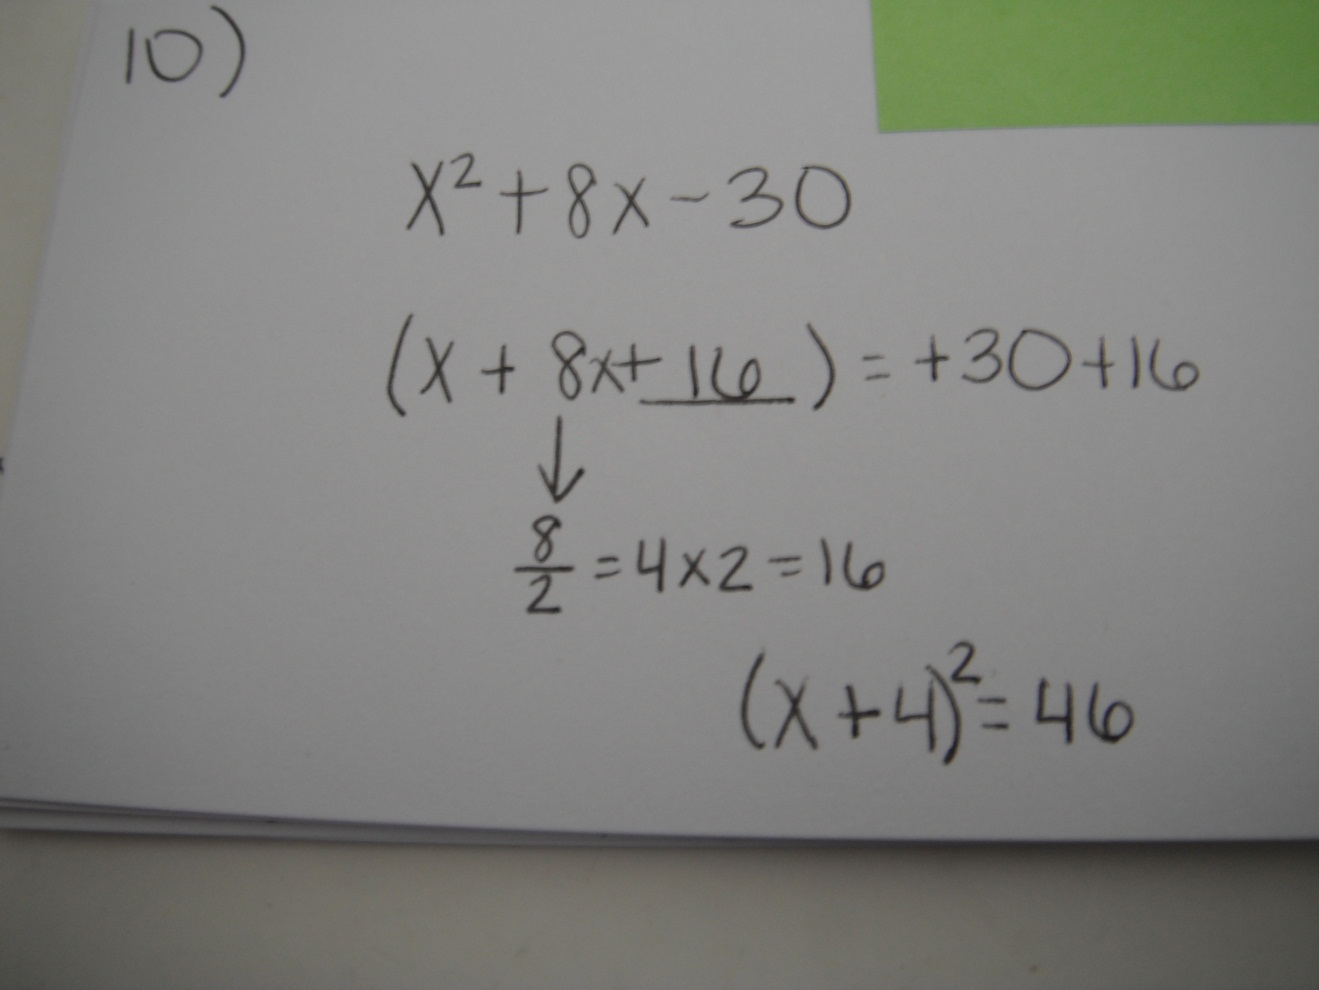 10)
x² + 8x - 30
(x + 8x + 16) = +30 + 16
↓
8/2 = 4 x 2 = 16
(x + 4)² = 46